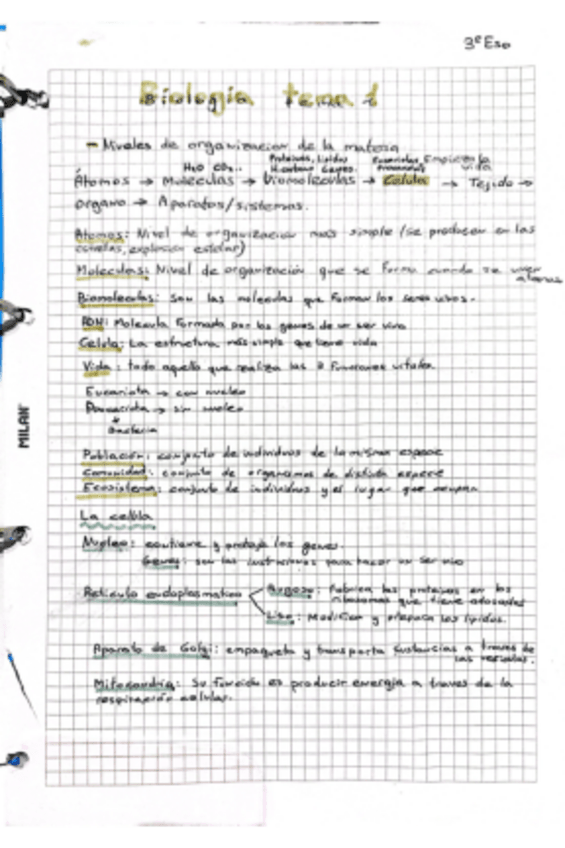 3º Eso
Biología tema 1
- Niveles de organización de la materia
H2O CO2.. Proteínas, lípidos Eucariotas Empieza la
vida
Átomos → Moléculas → Biomoléculas → Célula → Tejido →
órgano → Aparatos/sistemas.
Átomos: Nivel de organización más simple (se producen en las
estrellas, explosión estelar)
Moléculas: Nivel de organización que se forma cuando se unen
átomos
Biomoléculas: son las moléculas que forman los seres vivos.
ADN: Molécula formada por los genes de un ser vivo
Célula: La estructura más simple que tiene vida
Vida: todo aquello que realiza las 3 funciones vitales.
Eucariota → con núcleo
Procariota → sin núcleo
Bacteria
Población: conjunto de individuos de la misma especie
Comunidad: conjunto de organismos de distinta especie
Ecosistema: conjunto de individuos y el lugar que ocupan
La célula
Núcleo: contiene y protege los genes.
Genes: son las instrucciones para hacer un ser vivo
Retículo endoplasmático Rugoso: fabrica las proteínas en los
ribosomas que tiene adosados
Liso: Modifica y prepara los lípidos.
Aparato de Golgi: empaqueta y transporta sustancias a través de
las vesículas.
Mitocondria: Su función es producir energía a través de la
respiración celular.
MILAN